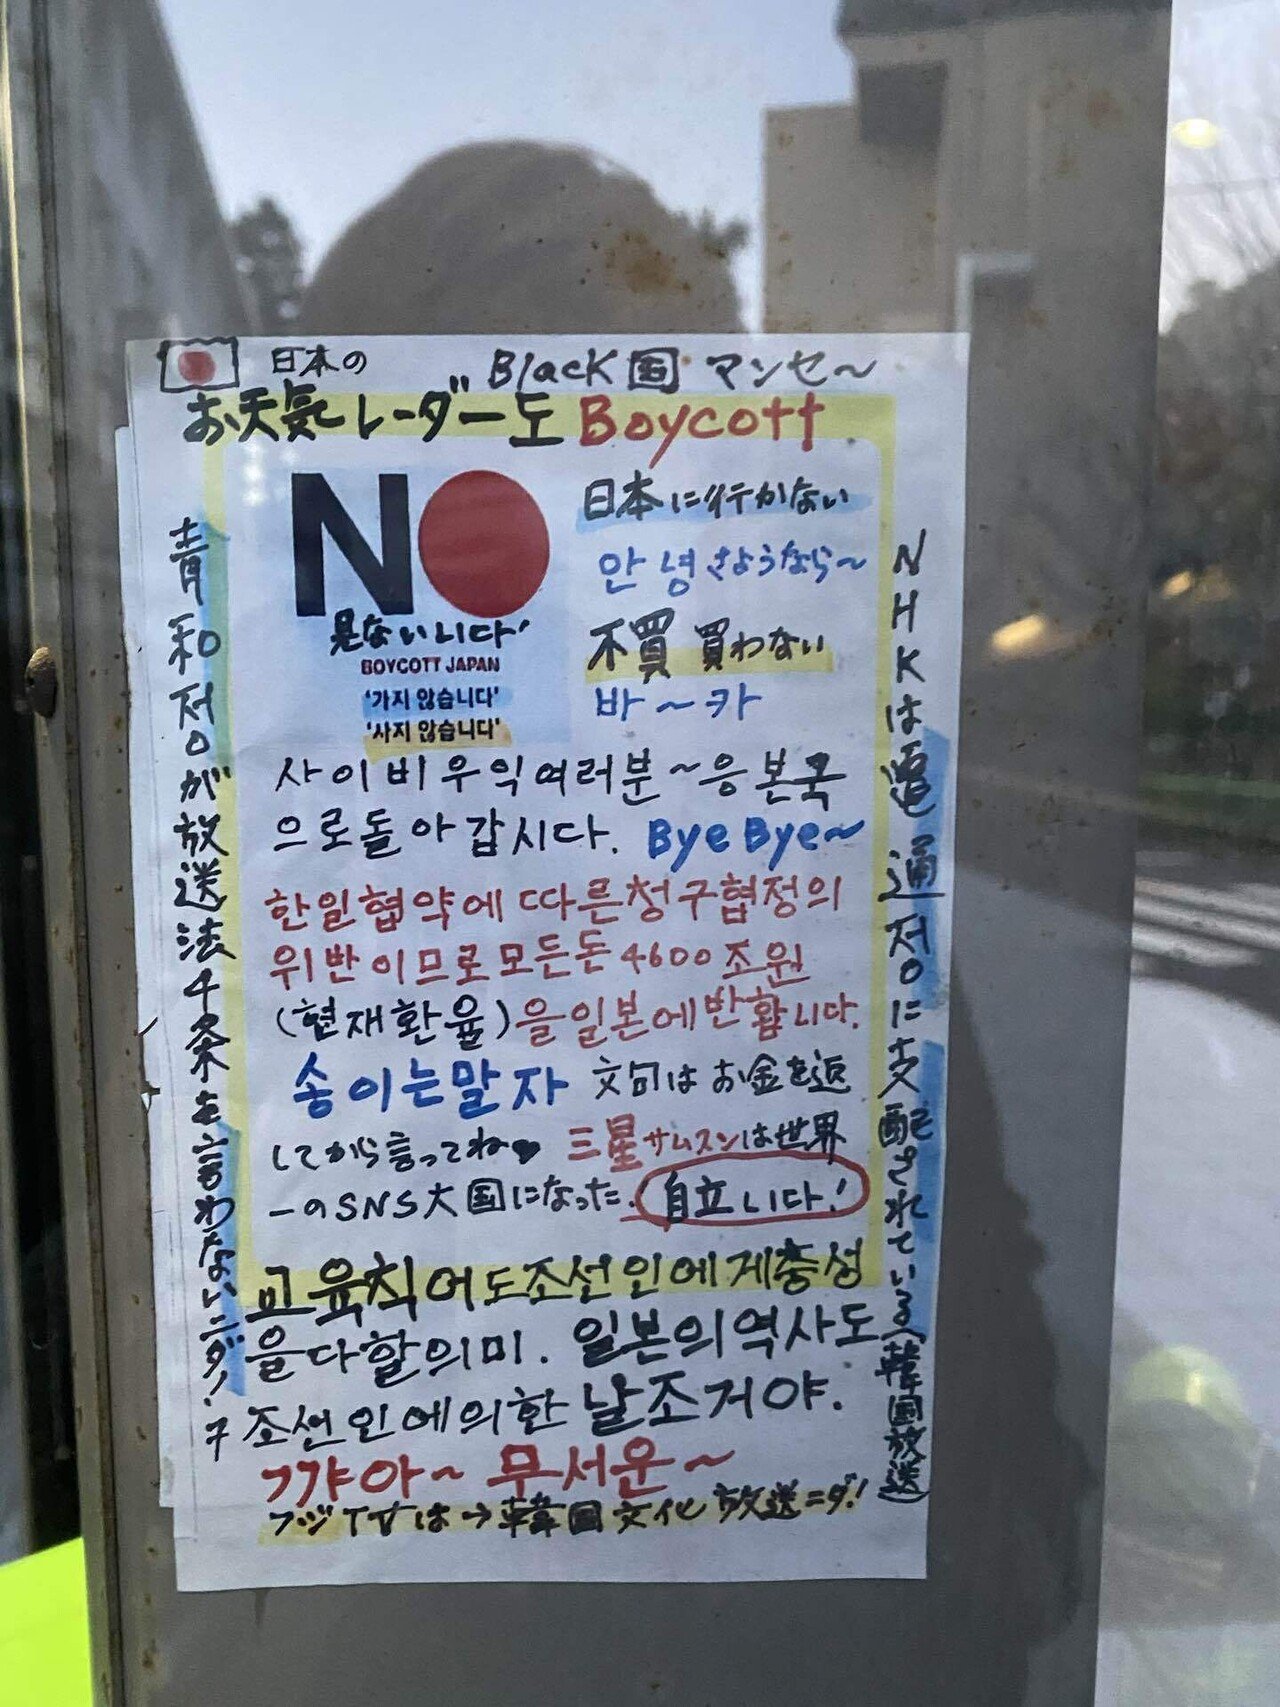 日本の Black 国 マンセ～
お天気レーダー도 Boycott
NO
見ないㅣ니다'
BOYCOTT JAPAN
'가지 않습니다'
'사지 않습니다'
日本に行かない
안녕 さようなら～
不買 買わない
바～카
사이비우익여러분～응본국
으로돌아갑시다. Bye Bye～
한일협약에 따른청구협정의
위반이므로모든돈4600조원
(현재환율)을일본에반환합니다.
송이는말자 文句は お金を返
してから言ってね 三星サムスンは世界
一のSNS大国になった. 自立ㅣ니다!
교육칙어도조선인에게충성
을다할의미. 일본의역사도
조선인에의한 날조거야.
ㄱ갸아～ 무서운～
フジTVは→韓国文化放送ニダ!
青和정が放送法4条を言わないニダ!
NHKは電通정に支配されている(韓国放送)